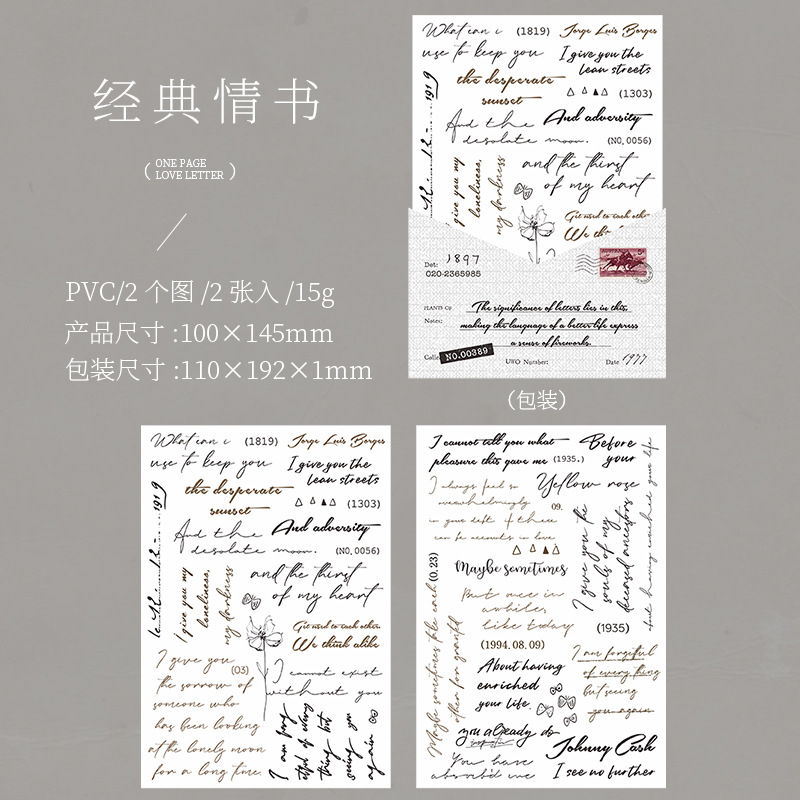 经典情书
( ONE PAGE
LOVE LETTER )
PVC/2个图/2张入/15g
产品尺寸:100×145mm
包装尺寸:110×192×1mm
What can i (1819) Jorge Luis Borges
use to keep you I give you the
lean streets
the desperate
sunset (1303)
1919
And the And adversity
desolate moon. (NO, 0056)
and the thirst
of my heart
give you my
loneliness,
my darkness
Get used to each other
We th
Det: 1897
020-2365985
PLANTS CO
The significance of letters lies in this,
Notes: making the language of a better life express
a sense of fireworks.
Colle NO.00389
UWO Number:
Date 1977
(包装)
What can i (1819) Jorge Luis Borges
use to keep you I give you the
lean streets
the desperate
sunset (1303)
1919
And the And adversity
desolate moon. (NO, 0056)
and the thirst
of my heart
I give you my
loneliness,
my darkness
Get used to each other
We think alike
I give you (03)
the sorrow of
someone who
has been looking
at the lonely moon
for a long time.
I cannot exist
without you
I am forg
etful of every
thing but
seeing you
again
I cannot tell you what
pleasure this gave me (1935.)
Before
your
I always feel so
overwhelmingly 09.
in your debt if there
can be accounts in love
Yellow rose
I give you the
souls of my
deceased ancestors
And having reached your life
(0.23)
Maybe sometimes
But once in
awhile,
like today
(1994.08.09)
(1935)
Maybe sometimes take each
other for granted
About having
enriched
your life.
I am forgetful
of every thing
but seeing
you again
you already do
You have
absorb'd me
Johnny Cash
I see no further